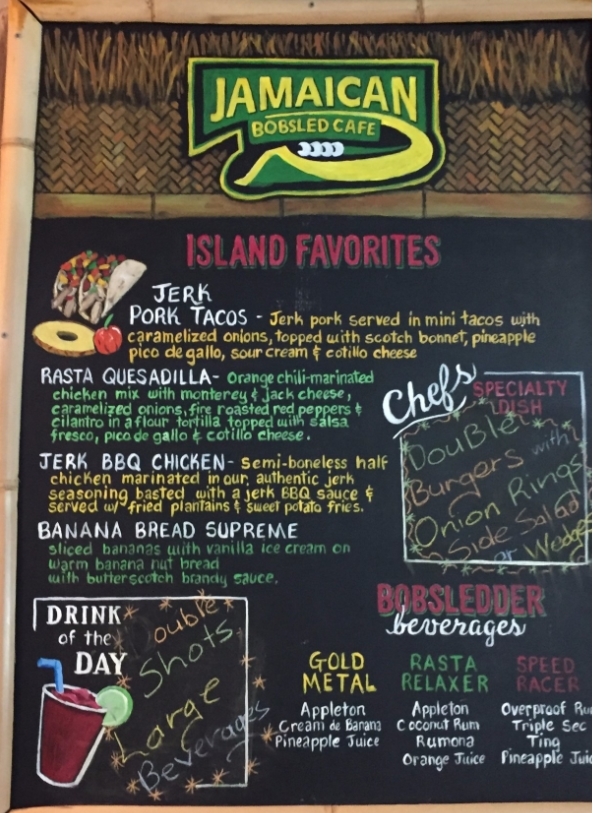 JAMAICAN
BOBSLED CAFE
ISLAND FAVORITES
JERK
PORK TACOS - Jerk pork served in mini tacos with
caramelized onions, topped with scotch bonnet, pineapple
pico de gallo, sour cream & cotillo cheese
RASTA QUESADILLA - Orange chili-marinated
chicken mix with monterey & Jack cheese,
caramelized onions, fire roasted red peppers &
cilantro in a flour tortilla topped with salsa
fresco, pico de gallo & cotillo cheese.
JERK BBQ CHICKEN - Semi-boneless half
chicken marinated in our, authentic jerk
seasoning basted with a jerk BBQ sauce &
served w/ fried plantains & sweet potato fries.
BANANA BREAD SUPREME
sliced bananas with vanilla ice cream on
warm banana nut bread
with butterscotch brandy sauce.
Chefs SPECIALTY
DISH
Double
Burgers with
Onion Rings
Side Salad
or Wedge
DRINK
of the
DAY
Double
Shots
Large
Beverages
BOBSLEDDER
beverages
GOLD
METAL
Appleton
Cream de Banana
Pineapple Juice
RASTA
RELAXER
Appleton
Coconut Rum
Rumona
Orange Juice
SPEED
RACER
Overproof Ru
Triple Sec
Ting
Pineapple Jui